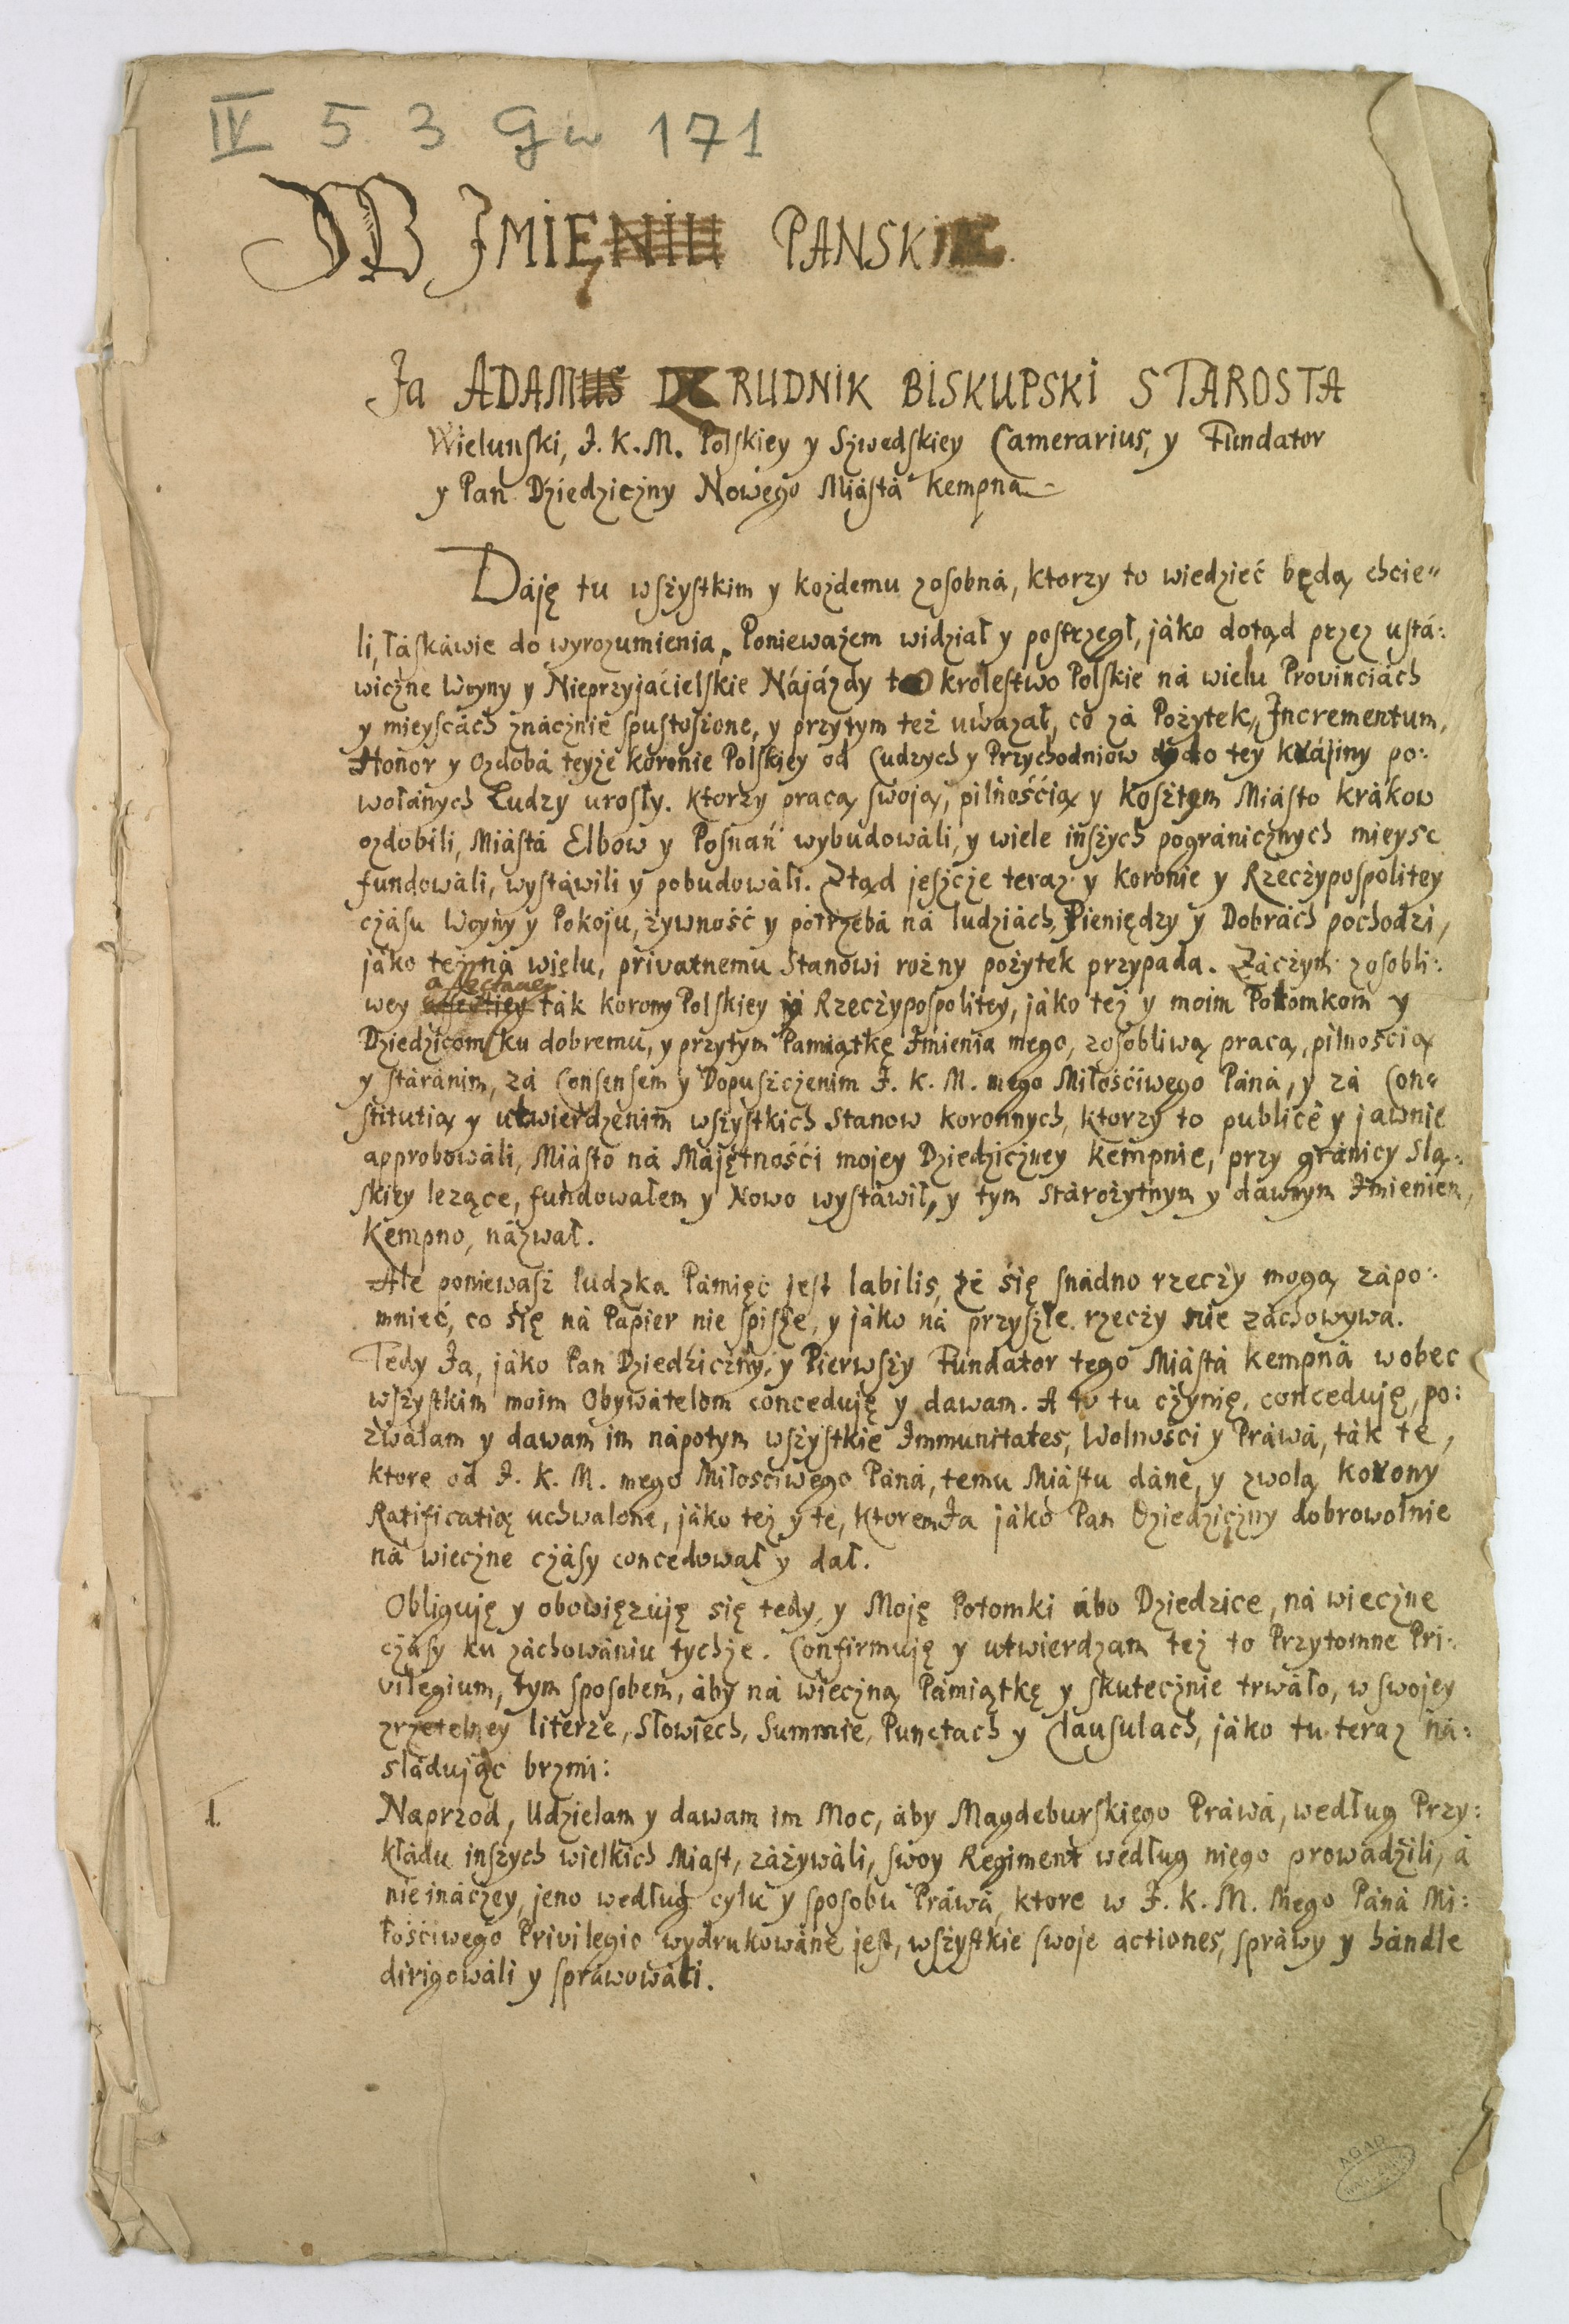 IV 5 3 Gw 171
W IMIĘ PANSKIE.
Ja ADAM Z RUDNIK BISKUPSKI STAROSTA
Wielunski, J. K. M. Polskiey y Szwedskiey Camerarius, y Fundator
y Pan Dziedziczny Nowego Miástá Kempna
Dáję tu wszystkim y kożdemu zosobná, ktorzy to wiedzieć będą chcie„
li, łáskáwie do wyrozumienia, Ponieważem widział y postrzegł, jáko dotąd przez ustá:
wiczne Woyny y Nieprzyjaćielskie Nájázdy to krolestwo Polskie ná wielu Provinciách
y mieyscách znácznie spustoszone, y przytym też uważał, co zá Pożytek, Incrementum,
Honor y Ozdobá teyże koronie Polskiey od Cudzych y Przychodniow do tey kráiny po:
wołánych Ludzy urosły. Ktorzy pracą swoją, pilnośćią y kosztem Miásto krákow
ozdobili, Miástá Elbow y Posnań wybudowáli, y wiele inszych pogránicznych mieysc
fundowáli, wystáwili y pobudowáli. Ztąd jeszcze teraz y koronie y Rzeczypospolitey
czásu Woyny y Pokoju, żywność y potrzebá ná ludziách, Pieniędzy y Dobrách pochodzi,
jáko też ná wielu, privatnemu Stanowi rożny pożytek przypada. Záczym zosobli:
wey ták korony Polskiey y Rzeczypospolitey, jáko też y moim Potomkom y
Dziedzicom ku dobremu, y przytym Pamiątkę Imienia mego, zosobliwą pracą, pilnością
y stáránim, zá Consensem y Dopuszczenim J. K. M. mego Miłośćiwego Páná, y zá Con„
stitutią y utwierdzenim wszystkich Stanow koronnych, ktorzy to publicè y jawnie
approbowáli, Miásto ná Májętnośći mojey Dziedziczney Kempnie, przy gránicy Slą:
skiey lezące, fundowałem y Nowo wystáwił, y tym stárożytnym y dawnym Imieniem,
Kempno, názwał.
Ale poniewasz ludzka Pámięć jest labilis, że się snádno rzeczy mogą zápo:
mnieć, co się ná Papier nie spisze, y jáko ná przyszłe rzeczy nie záchowywa.
Tedy Ja, jáko Pan Dziedziczny, y Pierwszy Fundator tego Miástá Kempná wobec
wszystkim moim Obywátelom conceduję y dawam. A to tu czynię, conceduję, po:
zwalam y dawam im nápotym wszystkie Immunitates, Wolnosci y Práwá, ták te,
ktore od J. K. M. mego Miłosciwego Páná, temu Miástu dáne, y zwolą korony
Ratificatią uchwalone, jáko też y te, ktorem Ja jáko Pan Dziedziczny dobrowolnie
ná wieczne czásy concedował y dał.
Obliguję y obowięzuję się tedy, y Moję Potomki ábo Dziedzice, ná wieczne
czásy ku záchowániu tychże. Confirmuję y utwierdzam też to Przytomne Pri:
vilegium, tym sposobem, áby ná wieczną Pámiątkę y skutecznie trwáło, w swojey
zrzetelney literze, Słowiech, Summie, Punctach y Clausulach, jáko tu teraz ná:
sládując brzmi:
1.
Naprzod, Udzielam y dawam im Moc, áby Magdeburskiego Práwá, według Przy:
kłádu inszych wielkich Miast, záżywáli, swoy Regiment według niego prowadzili, á
nie ináczey, jeno według cylu y sposobu Práwá, ktore w J. K. M. mego Páná Mi:
łośćiwego Privilegio wydrukowáne jest, wszystkie swoje actiones, spráwy y hándle
dirigowáli y spráwowáli.
AGAD